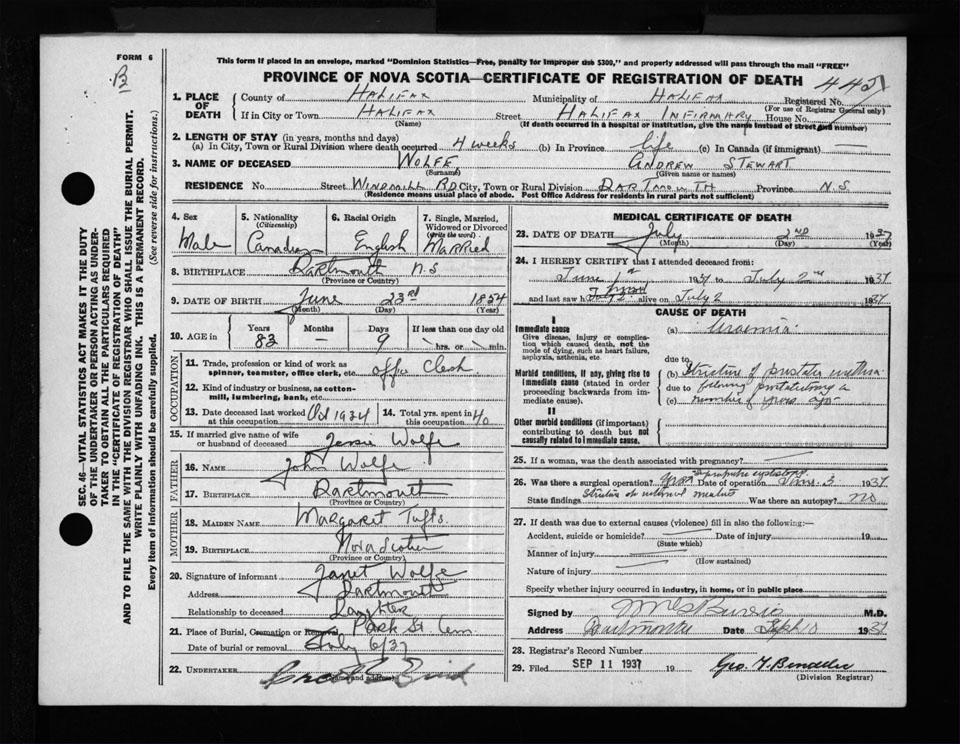 FORM 6
B
2
This form if placed in an envelope, marked "Dominion Statistics—Free, penalty for improper use $300," and properly addressed will pass through the mail "FREE"
PROVINCE OF NOVA SCOTIA—CERTIFICATE OF REGISTRATION OF DEATH
SEC. 46—VITAL STATISTICS ACT MAKES IT THE DUTY
OF THE UNDERTAKER OR PERSON ACTING AS UNDER-
TAKER TO OBTAIN ALL THE PARTICULARS REQUIRED
IN THE "CERTIFICATE OF REGISTRATION OF DEATH"
AND TO FILE THE SAME WITH THE DIVISION REGISTRAR WHO SHALL ISSUE THE BURIAL PERMIT.
WRITE PLAINLY WITH UNFADING INK. THIS IS A PERMANENT RECORD.
Every item of information should be carefully supplied. (See reverse side for instructions.)
1. PLACE OF DEATH
County of HALIFAX Municipality of HALIFAX Registered No.
(For use of Registrar General only)
If in City or Town HALIFAX Street HALIFAX INFIRMARY House No.
(Name) (If death occurred in a hospital or institution, give the name instead of street and number)
2. LENGTH OF STAY (in years, months and days)
(a) In City, Town or Rural Division where death occurred 4 weeks (b) In Province life (c) In Canada (if immigrant) —
3. NAME OF DECEASED WOLFE ANDREW STEWART
(Surname) (Given name or names)
RESIDENCE No. Street WINDMILL RD. City, Town or Rural Division DARTMOUTH Province N.S.
(Residence means usual place of abode. Post Office Address for residents in rural parts not sufficient)
4. Sex Male
5. Nationality (Citizenship) Canadian
6. Racial Origin English
7. Single, Married, Widowed or Divorced (Write the word) Married
8. BIRTHPLACE Dartmouth N.S
(Province or Country)
9. DATE OF BIRTH June 23rd 1854
(Month) (Day) (Year)
10. AGE in Years 83 Months — Days 9 If less than one day old hrs. or min.
OCCUPATION
11. Trade, profession or kind of work as spinner, teamster, office clerk, etc. office Clerk
12. Kind of industry or business, as cotton-mill, lumbering, bank, etc.
13. Date deceased last worked at this occupation Oct 1934
14. Total yrs. spent in this occupation 40
15. If married give name of wife or husband of deceased Jessie Wolfe
FATHER
16. NAME John Wolfe
17. BIRTHPLACE Dartmouth
(Province or Country)
MOTHER
18. MAIDEN NAME Margaret Tufts
19. BIRTHPLACE Nova Scotia
(Province or Country)
20. Signature of informant Janet Wolfe
Address Dartmouth
Relationship to deceased Daughter
21. Place of Burial, Cremation or Removal Park St Cem
Date of burial or removal July 6/37
22. UNDERTAKER
(Name and address)
MEDICAL CERTIFICATE OF DEATH
23. DATE OF DEATH July 2nd 1937
(Month) (Day) (Year)
24. I HEREBY CERTIFY that I attended deceased from:
June 1st 1937 to July 2nd 1937
and last saw h alive on July 2 1937
CAUSE OF DEATH
I
Immediate cause
Give disease, injury or complication which caused death, not the mode of dying, such as heart failure, asphyxia, asthenia, etc.
(a) Uraemia
due to
Morbid conditions, if any, giving rise to immediate cause (stated in order proceeding backwards from immediate cause).
(b) Stricture of prostatic urethra
due to following prostatectomy a
(c) number of years ago
II
Other morbid conditions (if important) contributing to death but not causally related to immediate cause.
25. If a woman, was the death associated with pregnancy?
26. Was there a surgical operation? Yes Date of operation 1937
State findings Stricture of internal meatus Was there an autopsy? no
27. If death was due to external causes (violence) fill in also the following:—
Accident, suicide or homicide? Date of injury 19
(State which)
Manner of injury
(How sustained)
Nature of injury
Specify whether injury occurred in industry, in home, or in public place
Signed by M.D.
Address Dartmouth Date Sept 10 1937
28. Registrar's Record Number
29. Filed SEP 11 1937 19
(Division Registrar)